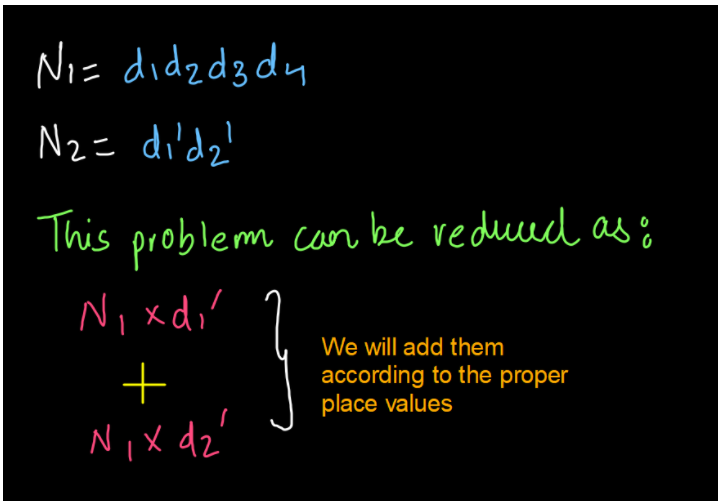 N1= d1d2d3d4
N2= d1'd2'
This problem can be reduced as:
N1 x d1'
+
N1 x d2'
We will add them
according to the proper
place values